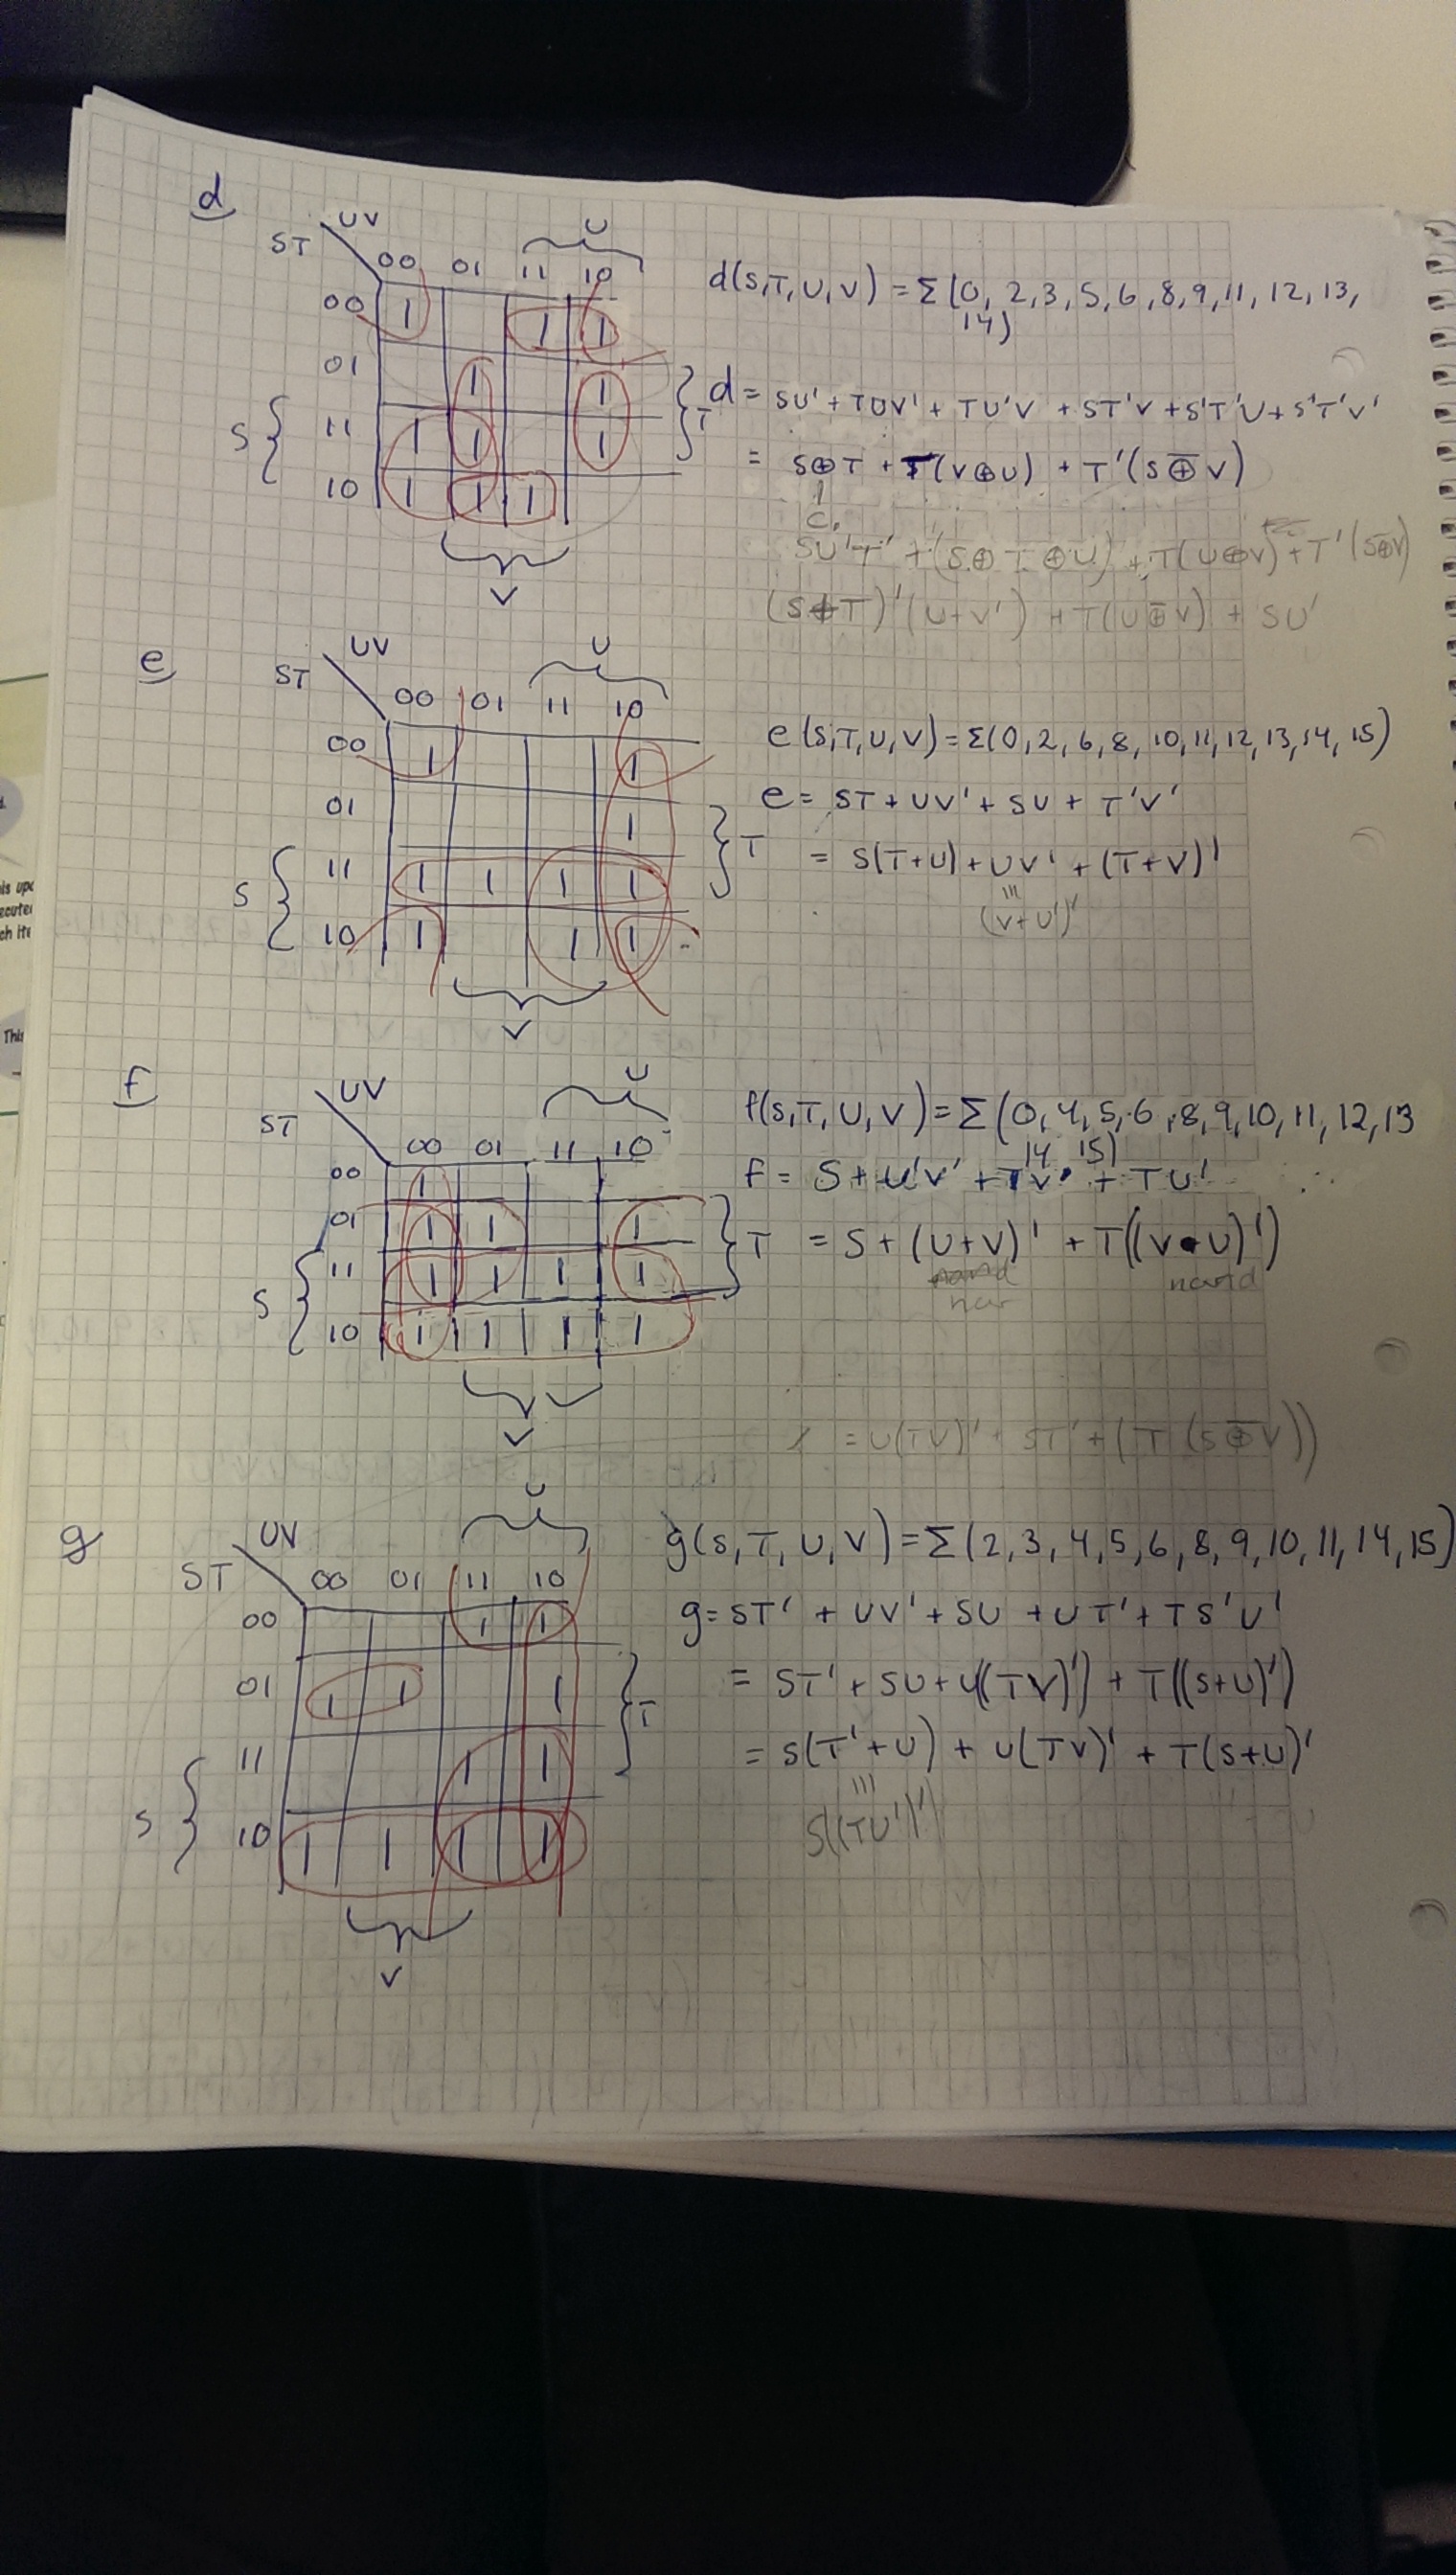 d
UV
ST
U
00 01 11 10
00 1 1 1
01 1 1
11 1 1 1
10 1 1 1
S
T
V
d(S,T,U,V) = Σ(0, 2,3,5,6,8,9,11,12,13,
14)
d = SU' + TUV' + TU'V + ST'V + S'T'U + S'T'V'
= S⊕T + T(V⊕U) + T'(S⊕̅V)
SU'T' + (S⊕T⊕U) + T(U⊕V) + T'(S⊕̅V)
(S+T)'(U+V') + T(U⊕̅V) + SU'
e
UV
ST
U
00 01 11 10
00 1 1
01 1
11 1 1 1 1
10 1 1 1
S
T
V
e(S,T,U,V) = Σ(0,2,6,8,10,11,12,13,14,15)
e = ST + UV' + SU + T'V'
= S(T+U) + UV' + (T+V)'
(V+U')'
f
UV
ST
U
00 01 11 10
00 1
01 1 1 1
11 1 1 1 1
10 1 1 1 1
S
T
V
f(S,T,U,V) = Σ(0,4,5,6,8,9,10,11,12,13
14 15)
f = S + U'V' + TV' + TU'
= S + (U+V)' + T((V•U)')
nand
nor
nand
= U(TV)' + ST' + (T(S⊕̅V))
g
UV
ST
U
00 01 11 10
00 1 1
01 1 1 1
11 1 1
10 1 1 1 1
S
T
V
g(S,T,U,V) = Σ(2,3,4,5,6,8,9,10,11,14,15)
g = ST' + UV' + SU + UT' + TS'U'
= ST' + SU + U((TV)') + T((S+U)')
= S(T'+U) + U(TV)' + T(S+U)'
S((TU')')
This